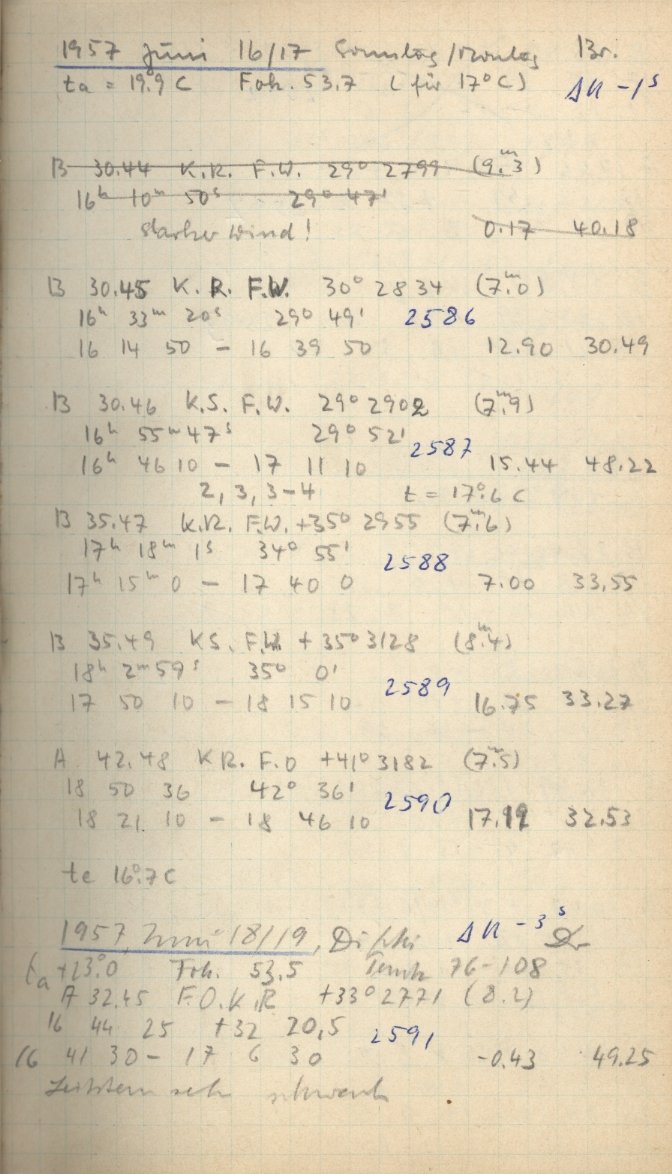 1957 Juni 16/17 Sonntag/Montag Br.
ta = 19°9 C Fok. 53.7 (für 17°C) ΔU -1ˢ
B 30.44 K.R. F.W. 29° 2799 (9ᵐ.3)
16ʰ 10ᵐ 50ˢ 29° 47'
starker Wind! 0.17 40.18
B 30.45 K.R. F.W. 30° 2834 (7ᵐ.0)
16ʰ 33ᵐ 20ˢ 29° 49' 2586
16 14 50 – 16 39 50 12.90 30.49
B 30.46 K.S. F.W. 29° 2902 (7ᵐ.9)
16ʰ 55ᵐ 47ˢ 29° 52' 2587
16ʰ 46 10 – 17 11 10 15.44 48.22
2, 3, 3-4 t = 17°.6 C
B 35.47 K.R. F.W. +35° 2955 (7ᵐ.6)
17ʰ 18ᵐ 1ˢ 34° 55' 2588
17ʰ 15ᵐ 0 – 17 40 0 7.00 33.55
B 35.49 KS. F.W. +35° 3128 (8ᵐ.4)
18ʰ 2ᵐ 59ˢ 35° 0' 2589
17 50 10 – 18 15 10 16.75 33.27
A 42.48 KR. F.O +41° 3182 (7ᵐ.5)
18 50 36 42° 36' 2590
18 21 10 – 18 46 10 17.12 32.53
te 16°.7 C
1957, Juni 18/19, ΔU -3ˢ
ta +23°.0 Fok. 53.5 76-108
A 32.45 F.O. K.R +33° 2771 (8.2)
16 44 25 +32 20,5 2591
16 41 30 – 17 6 30 -0.43 49.25
Leitstern sehr schwach